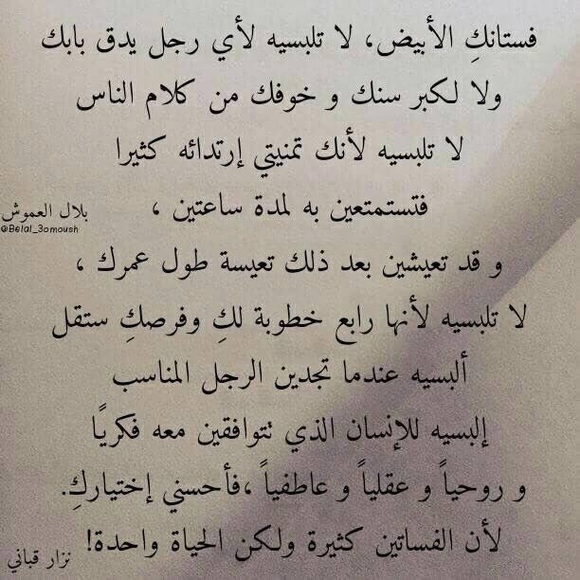 فستانكِ الأبيض، لا تلبسيه لأي رجل يدق بابك
ولا لكبر سنك و خوفك من كلام الناس
لا تلبسيه لأنك تمنيتي إرتدائه كثيرا
فتستمتعين به لمدة ساعتين ،
بلال العموش
@Belal_3omoush
و قد تعيشين بعد ذلك تعيسة طول عمرك ،
لا تلبسيه لأنها رابع خطوبة لكِ وفرصكِ ستقل
ألبسيه عندما تجدين الرجل المناسب
إلبسيه للإنسان الذي تتوافقين معه فكريًا
و روحياً و عقلياً و عاطفياً ،فأحسني إختياركِ.
لأن الفساتين كثيرة ولكن الحياة واحدة!
نزار قباني